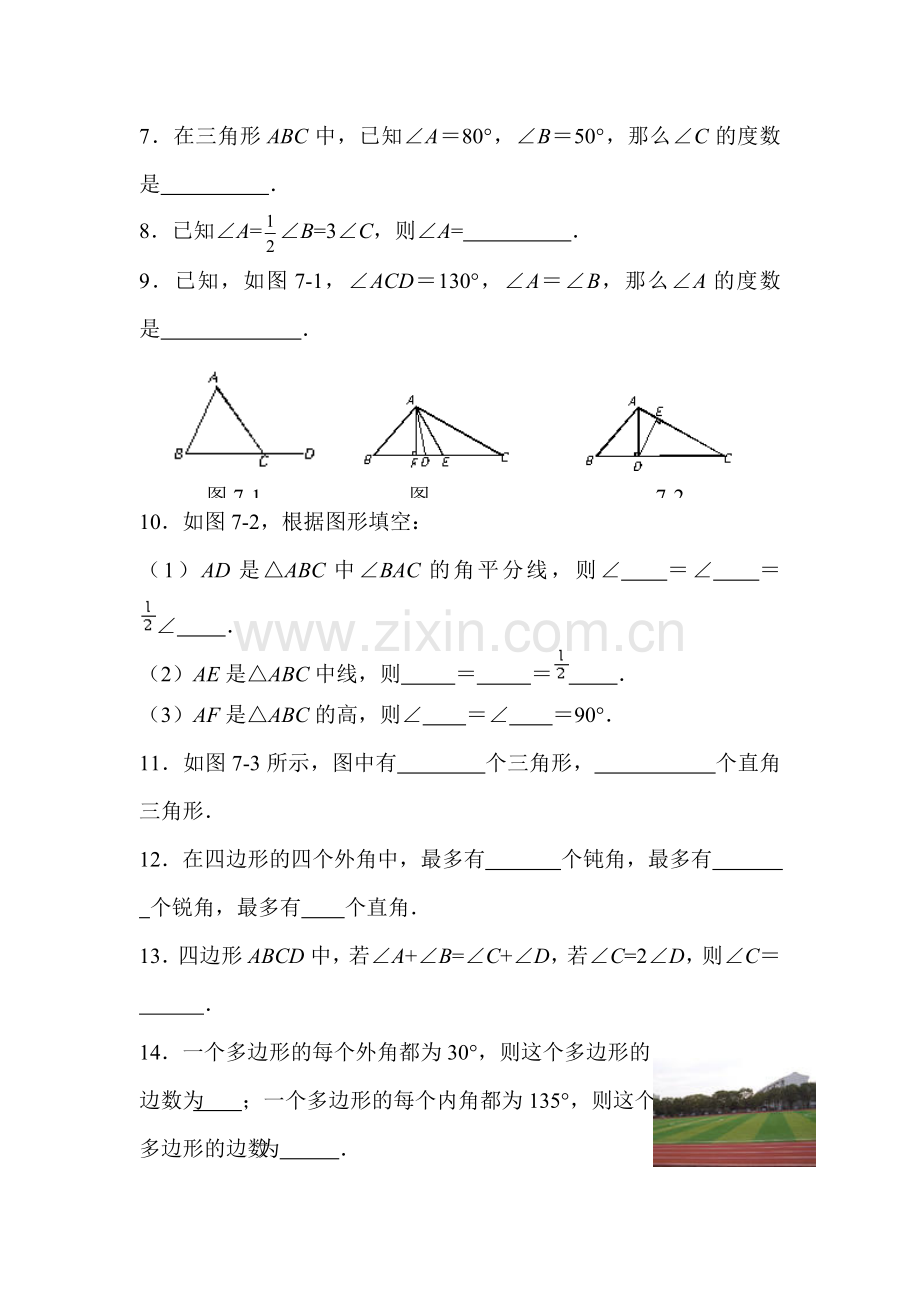 7．在三角形 ABC 中，已知∠A＝80°，∠B＝50°，那么∠C 的度数
是__________．
8．已知∠A=1/2∠B=3∠C，则∠A=__________．
9．已知，如图 7-1，∠ACD＝130°，∠A＝∠B，那么∠A 的度数
是_____________．
A B C D
A B F D E C
A E B D C
图 7-1 图 7-2
10．如图 7-2，根据图形填空：
（1）AD 是△ABC 中∠BAC 的角平分线，则∠____＝∠____＝
1/2∠____．
（2）AE 是△ABC 中线，则_____＝_____＝1/2____．
（3）AF 是△ABC 的高，则∠____＝∠____＝90°．
11．如图 7-3 所示，图中有________个三角形，___________个直角
三角形．
12．在四边形的四个外角中，最多有_______个钝角，最多有______
_个锐角，最多有____个直角．
13．四边形 ABCD 中，若∠A+∠B=∠C+∠D，若∠C=2∠D，则∠C＝
______．
14．一个多边形的每个外角都为 30°，则这个多边形的
边数为____；一个多边形的每个内角都为 135°，则这个
多边形的边数为_____．
www.zixin.com.cn